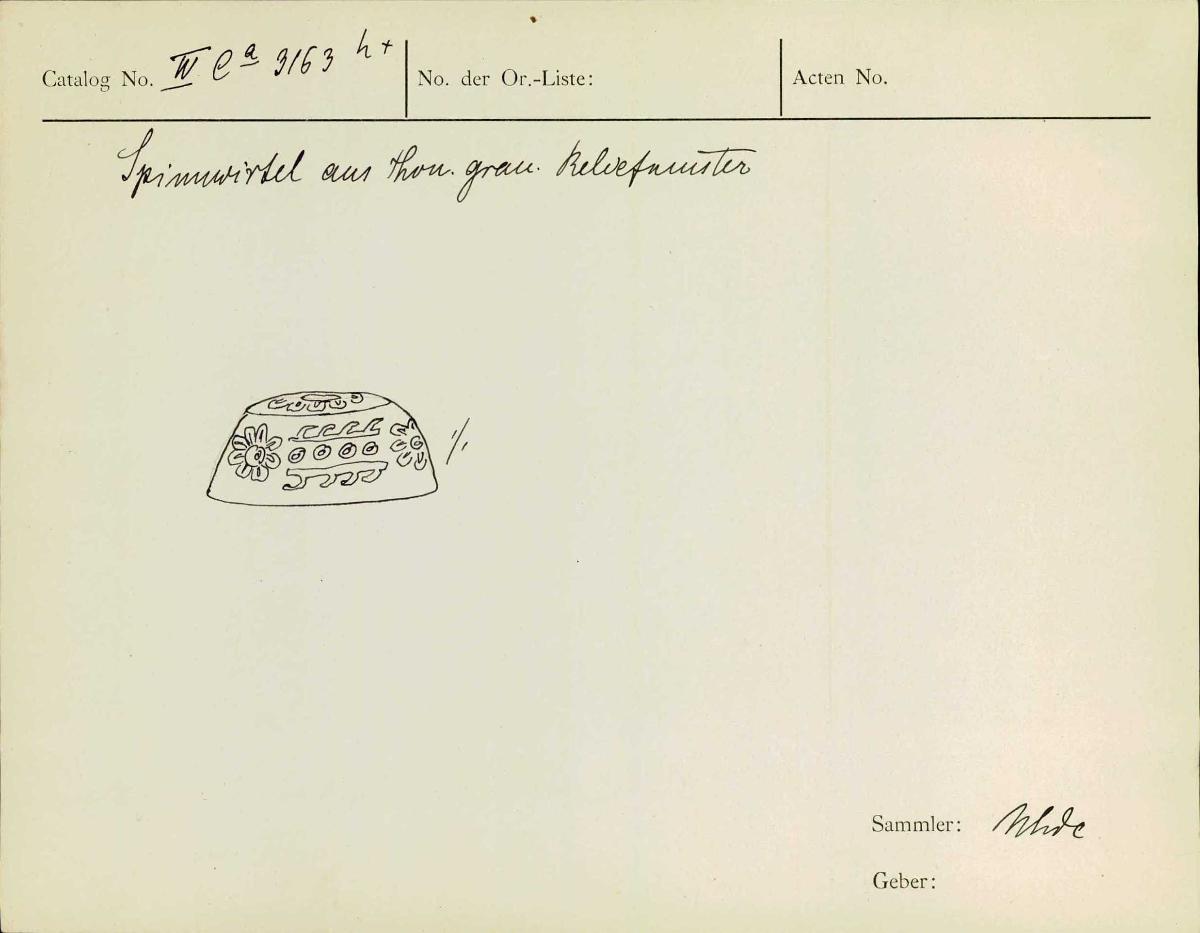 Catalog No. IV Ca 3163 h+
No. der Or.-Liste:
Acten No.
Spinnwirtel aus Thon. grau. Reliefmuster
1/1
Sammler: Uhde
Geber: